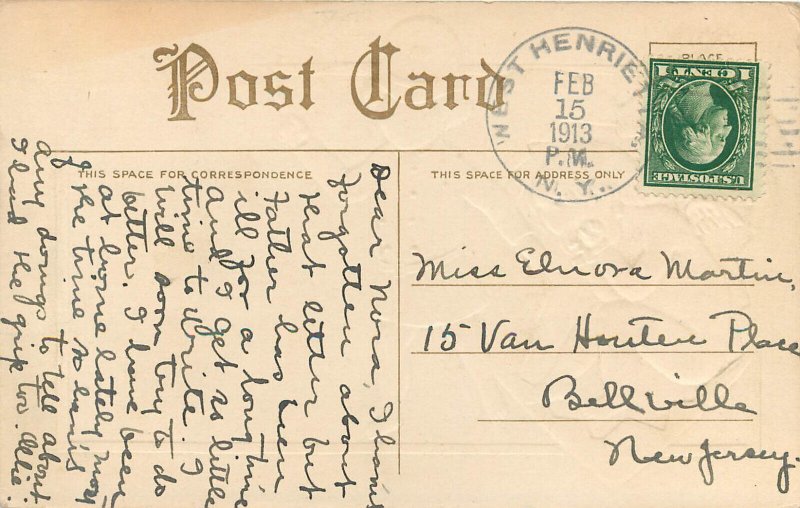 Post Card
WEST HENRIET
FEB
15
1913
P.M.
N. Y.
PLACE
1 CENT 1
U.S. POSTAGE
THIS SPACE FOR CORRESPONDENCE
THIS SPACE FOR ADDRESS ONLY
Dear Nora, I haven't
forgotten about
that letter but
Father has been
ill for a long time
and I get so little
time to write. I
will soon try to do
better. I have been
at home lately most
of the time so haven't
any doings to tell about
I had the grip too. Allie.
Miss Elnora Martin,
15 Van Houten Place
Bellville
New Jersey.